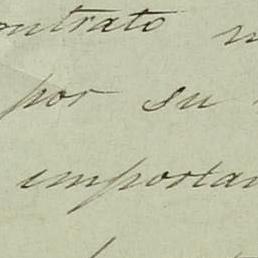 contrato
por su
importan